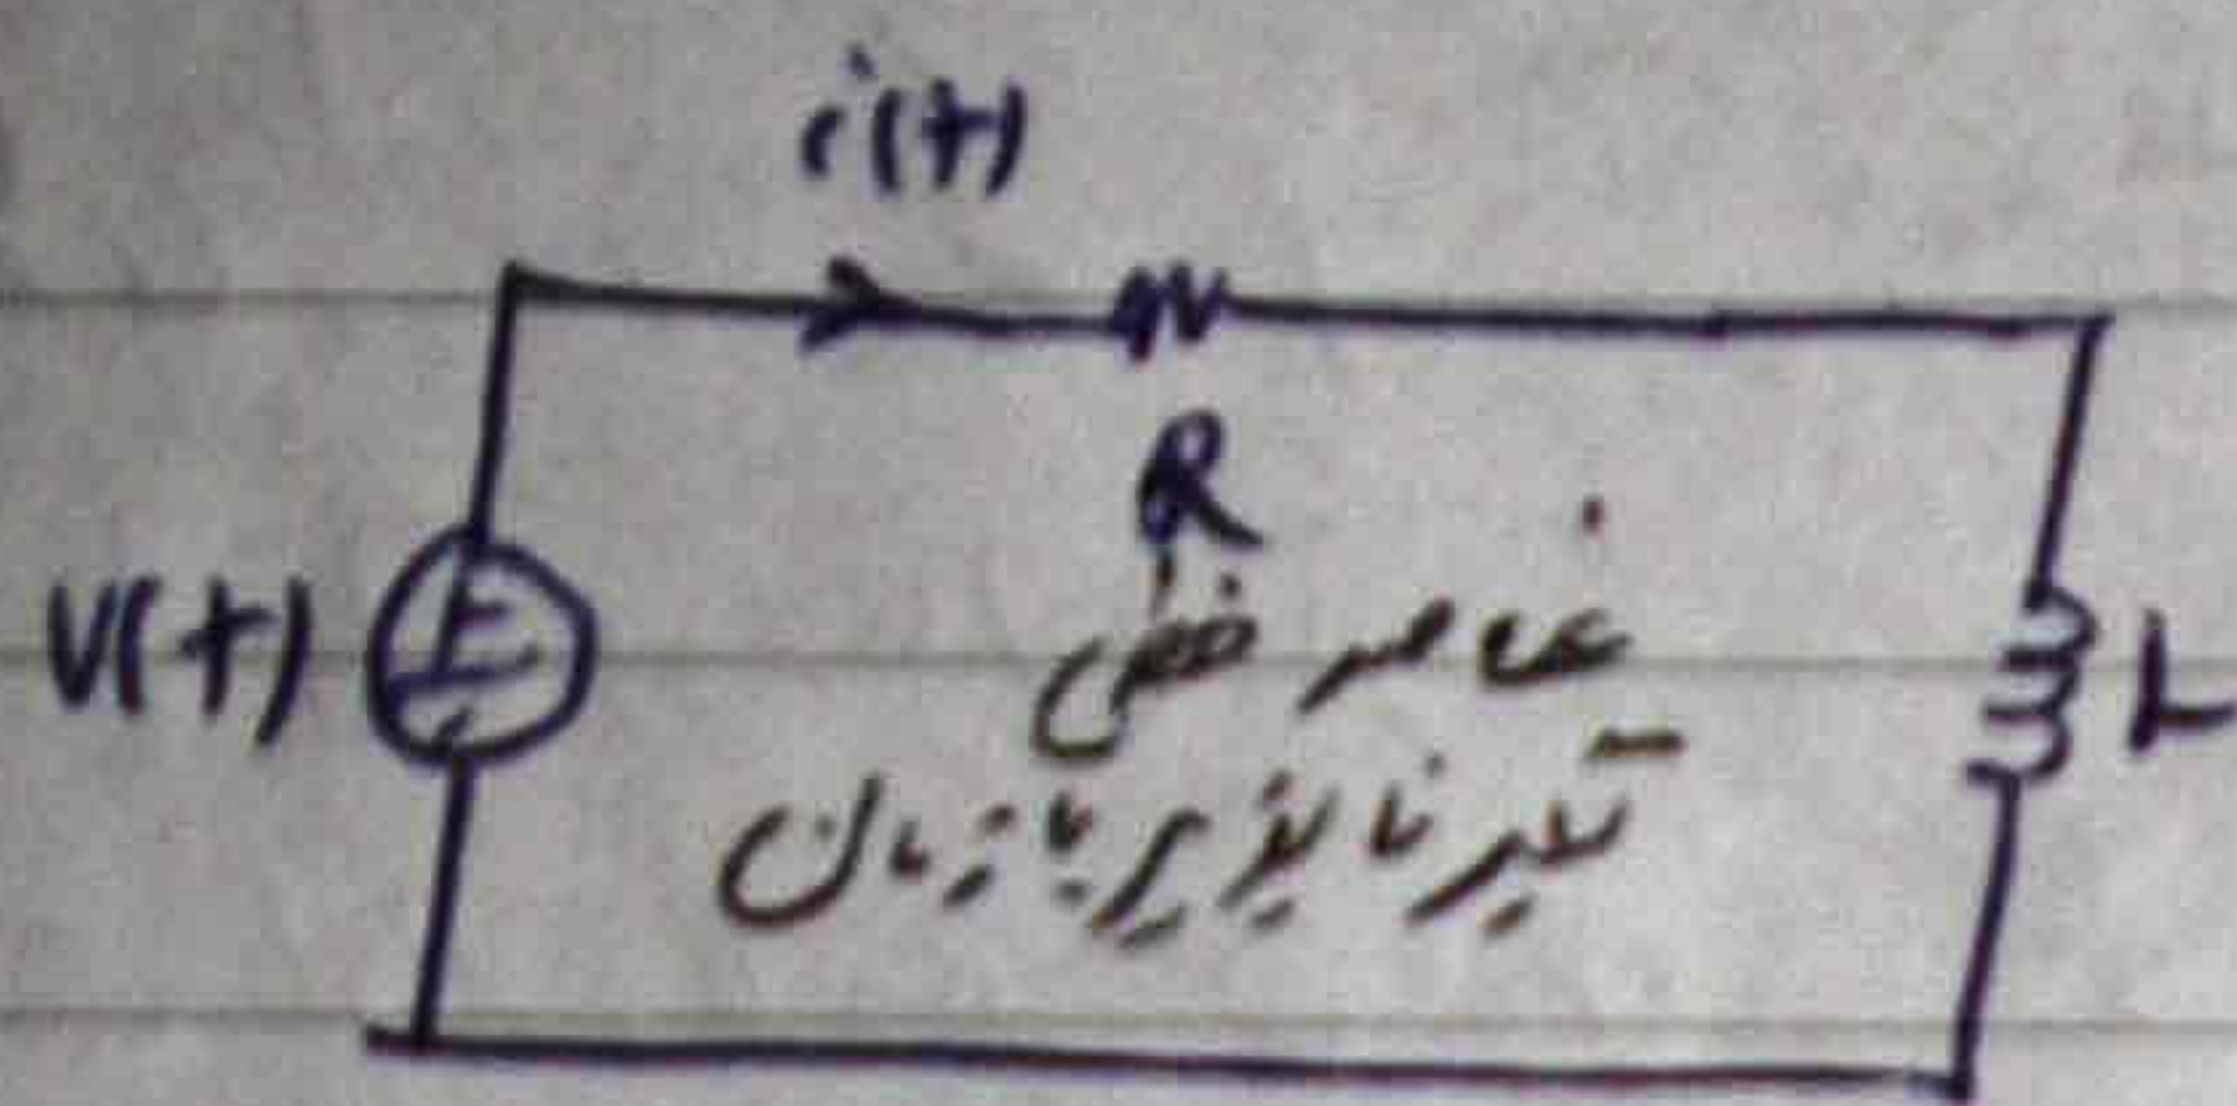 i(t)
R
V(t)
L
عناصر خطی
تغییر ناپذیر با زمان